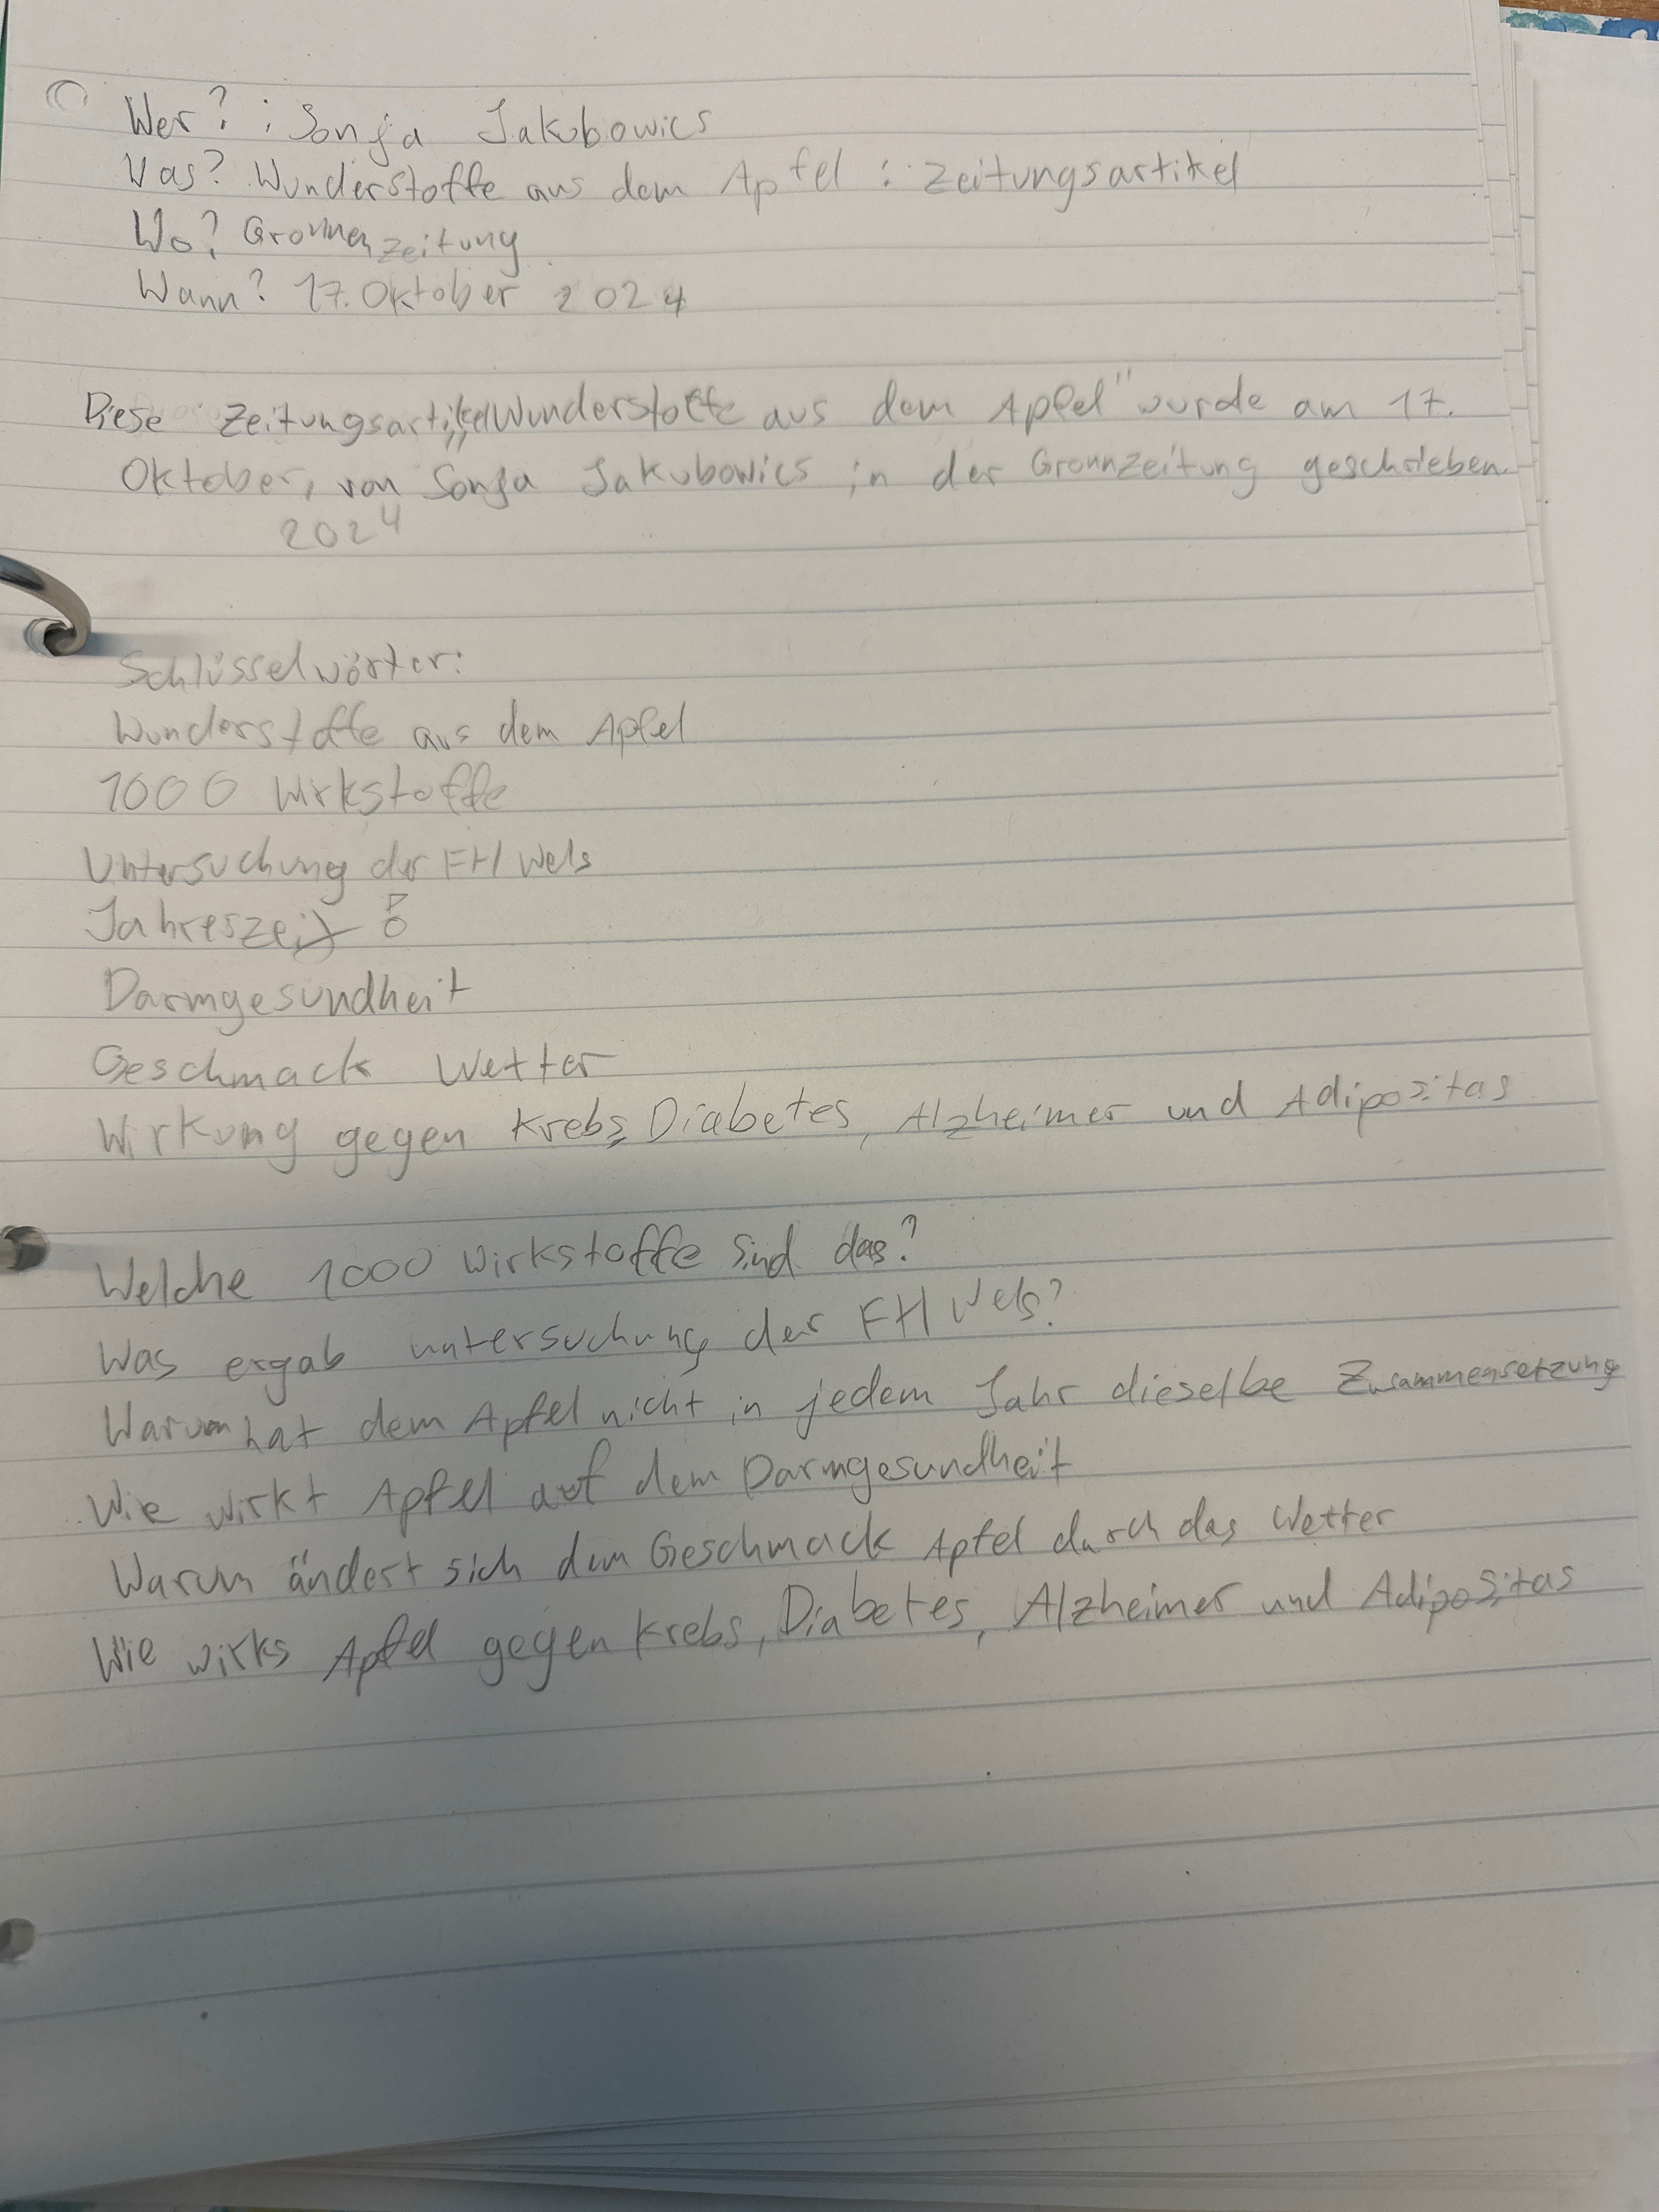 Wer? : Sonja Jakubowics
Was? Wunderstoffe aus dem Apfel : Zeitungsartikel
Wo? Gronnenzeitung
Wann? 17. Oktober 2024
Diese Zeitungsartikel „Wunderstoffe aus dem Apfel" wurde am 17.
Oktober, von Sonja Jakubowics in der Gronnzeitung geschrieben
2024
Schlüsselwörter:
Wunderstoffe aus dem Apfel
1000 Wirkstoffe
Untersuchung der FH Wels
Jahreszeit
Darmgesundheit
Geschmack Wetter
Wirkung gegen Krebs, Diabetes, Alzheimer und Adipositas
Welche 1000 Wirkstoffe sind das?
Was ergab untersuchung der FH Wels?
Warum hat dem Apfel nicht in jedem Jahr dieselbe Zusammensetzung
Wie wirkt Apfel auf dem Darmgesundheit
Warum ändert sich dem Geschmack Apfel durch das Wetter
Wie wirks Apfel gegen Krebs, Diabetes, Alzheimer und Adipositas